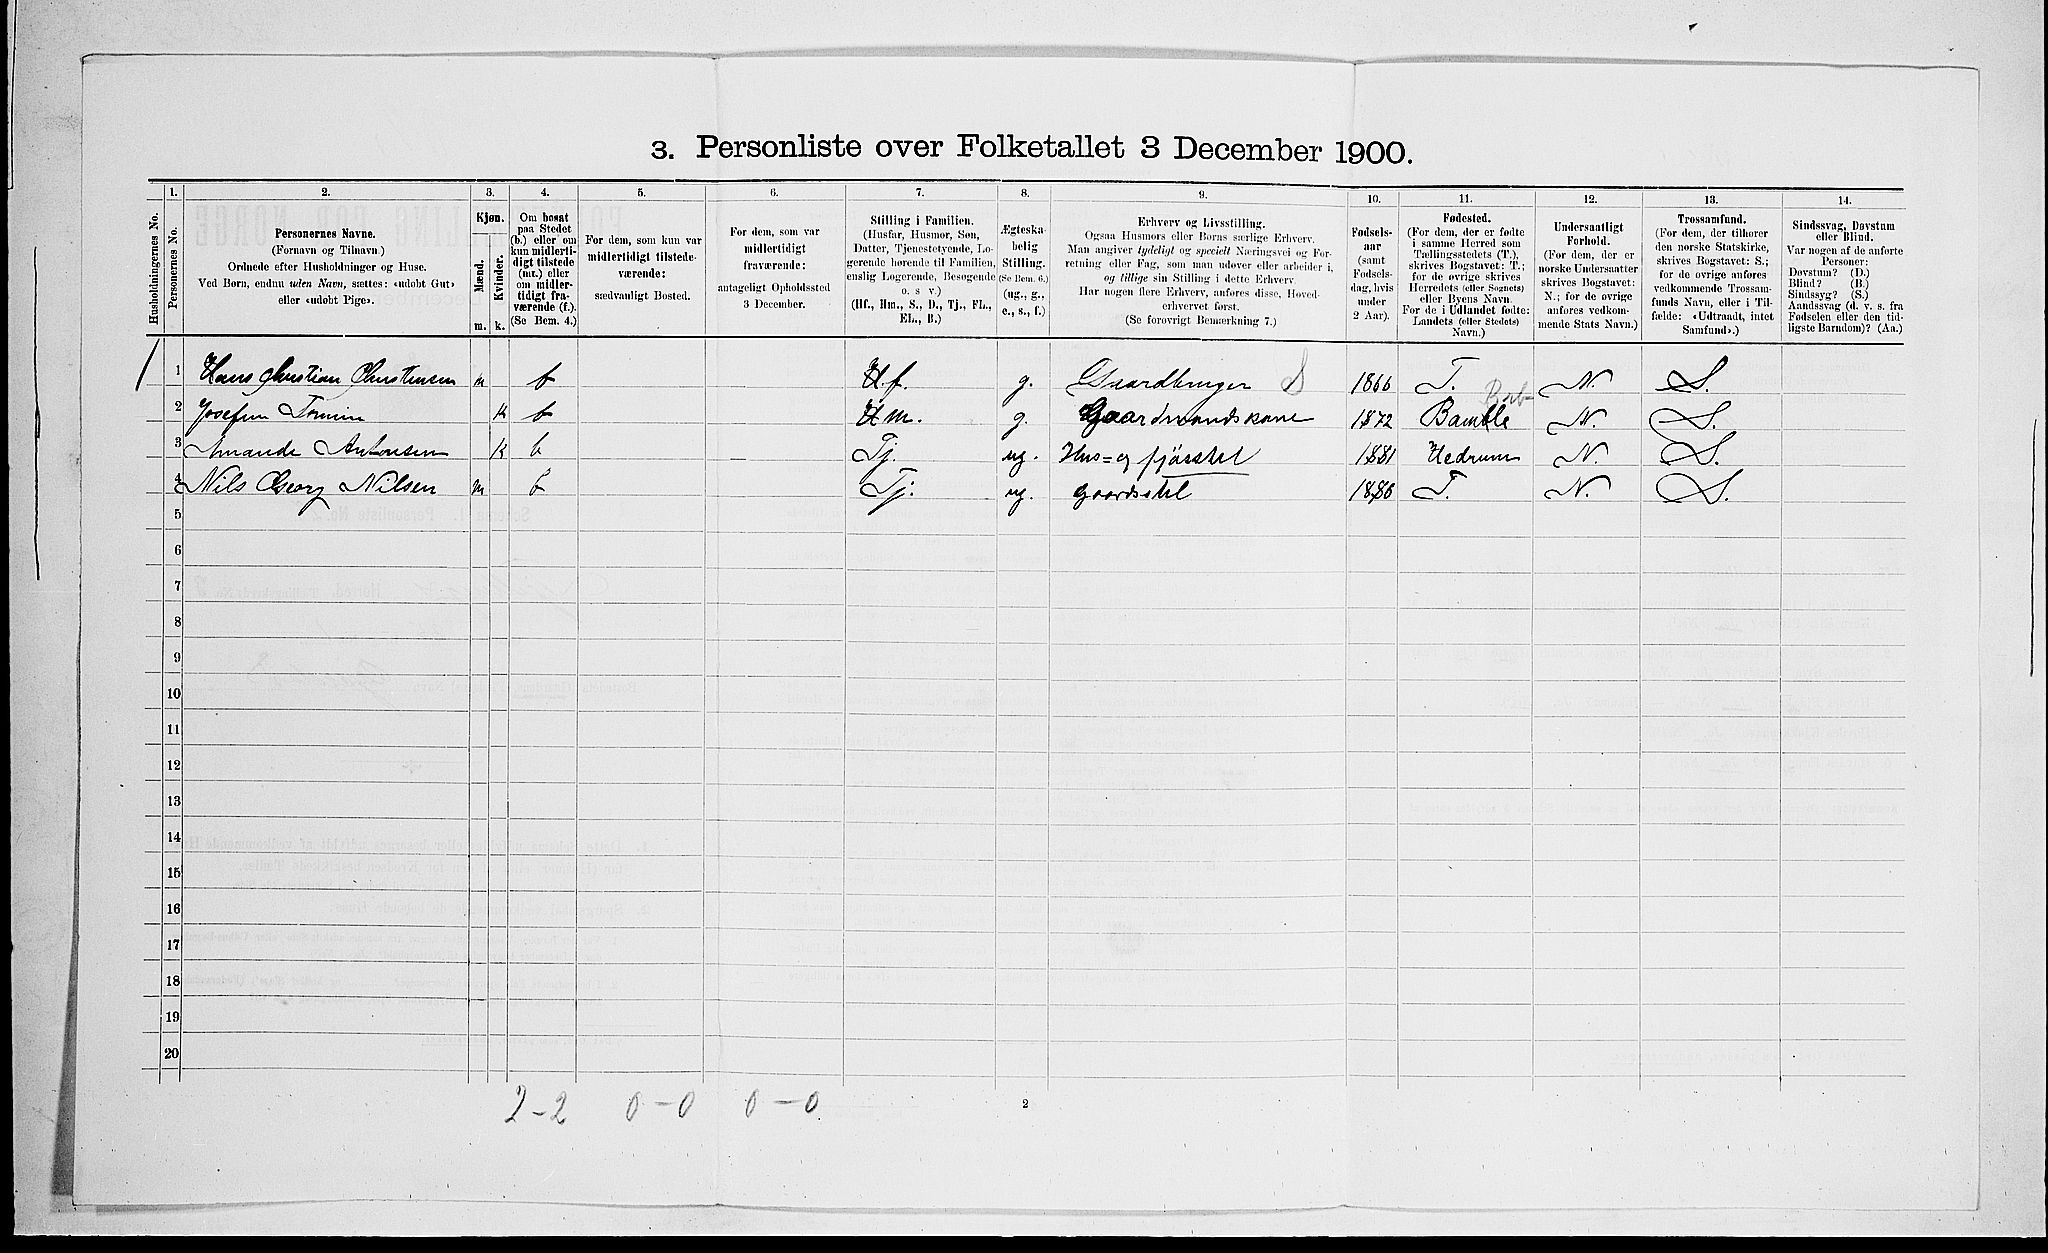 3. Personliste over Folketallet 3 December 1900.
1. 2. 3. 4. 5. 6. 7. 8. 9. 10. 11. 12. 13. 14.
Husholdningernes No.
Personernes No.
Personernes Navne.
(Fornavn og Tilnavn.)
Ordnede efter Husholdninger og Huse.
Ved Børn, endnu uden Navn, sættes: «udøbt Gut»
eller «udøbt Pige».
Kjøn.
Mænd.
Kvinder.
m. k.
Om bosat
paa Stedet
(b.) eller om
kun midlerti-
digt tilstede
(mt.) eller
om midler-
tidigt fra-
værende (f.).
(Se Bem. 4.)
For dem, som kun var
midlertidigt tilstede-
værende:
sædvanligt Bosted.
For dem, som var
midlertidigt
fraværende:
antageligt Opholdssted
3 December.
Stilling i Familien.
(Husfar, Husmor, Søn,
Datter, Tjenestetyende, Lo-
gerende hørende til Familien,
enslig Logerende, Besøgende
o. s. v.)
(Hf., Hm., S., D., Tj., FL.,
EL., B.)
Ægteska-
belig
Stilling.
(Se Bem. 6.)
(ug., g.,
e., s., f.)
Erhverv og Livsstilling.
Ogsaa Husmors eller Børns særlige Erhverv.
Man angiver tydeligt og specielt Næringsvei og For-
retning eller Fag, som man udøver eller arbeider i,
og tillige sin Stilling i dette Erhverv.
Har nogen flere Erhverv, anføres disse, Hoved-
erhvervet først.
(Se forøvrigt Bemærkning 7.)
Fødsels-
aar
(samt
Fødsels-
dag, hvis
under
2 Aar).
Fødested.
(For dem, der er fødte
i samme Herred som
Tællingsstedets (T.),
skrives Bogstavet: T.;
for de øvrige skrives
Herredets (eller Sognets)
eller Byens Navn.
For de i Udlandet fødte:
Landets (eller Stedets)
Navn.)
Undersaatligt
Forhold.
(For dem, der er
norske Undersaatter
skrives Bogstavet:
N.; for de øvrige
anføres vedkom-
mende Stats Navn.)
Trossamfund.
(For dem, der tilhører
den norske Statskirke,
skrives Bogstavet: S.;
for de øvrige anføres
vedkommende Trossam-
funds Navn, eller i Til-
fælde: «Udtraadt, intet
Samfund».)
Sindssvag, Døvstum
eller Blind.
Var nogen af de anførte
Personer:
Døvstum? (D.)
Blind? (B.)
Sindssyg? (S.)
Aandssvag (d. v. s. fra
Fødselen eller den tid-
ligste Barndom)? (Aa.)
1 1 Hans Christian Christensen m b Hf. g. Gaardbruger 1866 T. N. S.
2 Josefine k b Hm. g. Gaardmandskone 1872 Bamble N. S.
3 Amande Antonsen k b — Tj. ug. Hus= og fjøsstel 1881 Hedrum N. S.
4 Nils Georg Nilsen m b Tj. ug. gaardsstel 1886 T. N. S.
5
6
7
8
9
10
11
12
13
14
15
16
17
18
19
20
2-2 0-0 0-0 2